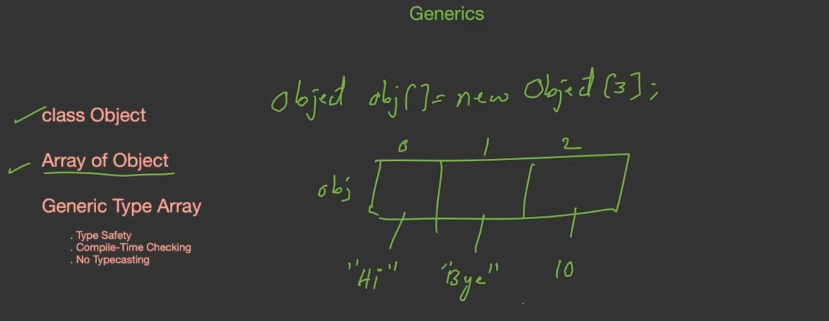 Generics
class Object
Array of Object
Generic Type Array
. Type Safety
. Compile-Time Checking
. No Typecasting
Object obj[]= new Object[3];
0 1 2
obj
"Hi" "Bye" 10